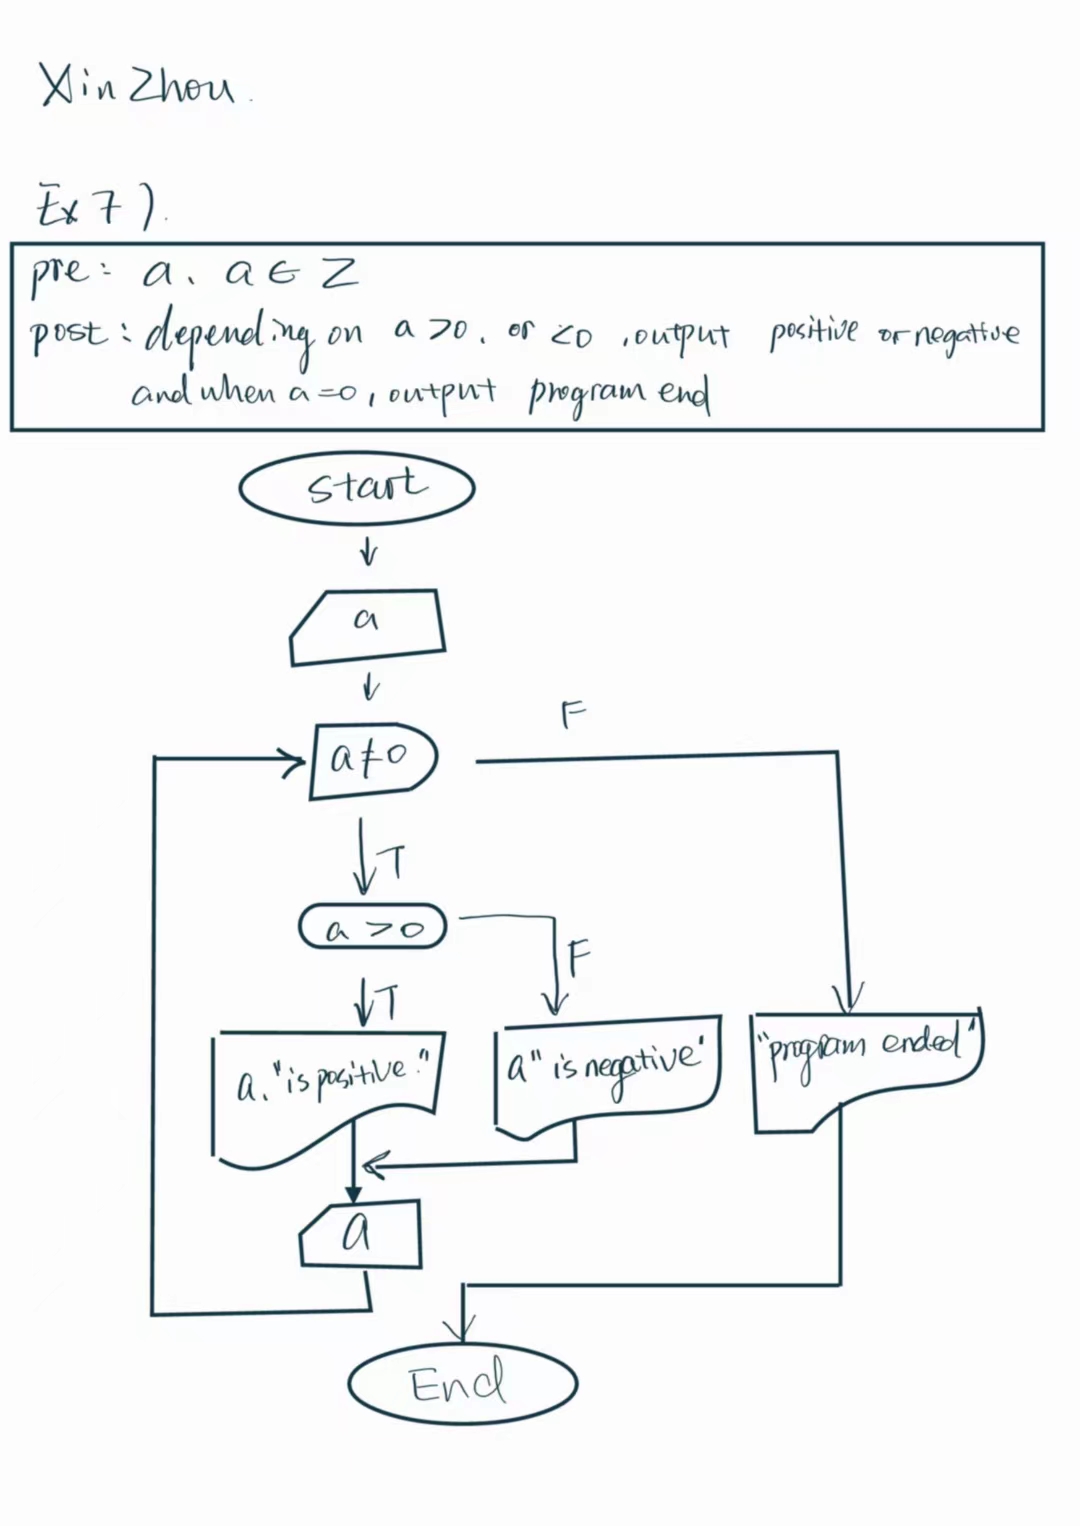 Xin Zhou.
Ex 7).
pre: a, a ∈ Z
post: depending on a >0, or <0, output positive or negative
and when a =0, output program end
start
a
F
a≠0
T
a >0
F
T
a, "is positive."
a" is negative'
"program ended"
a
End